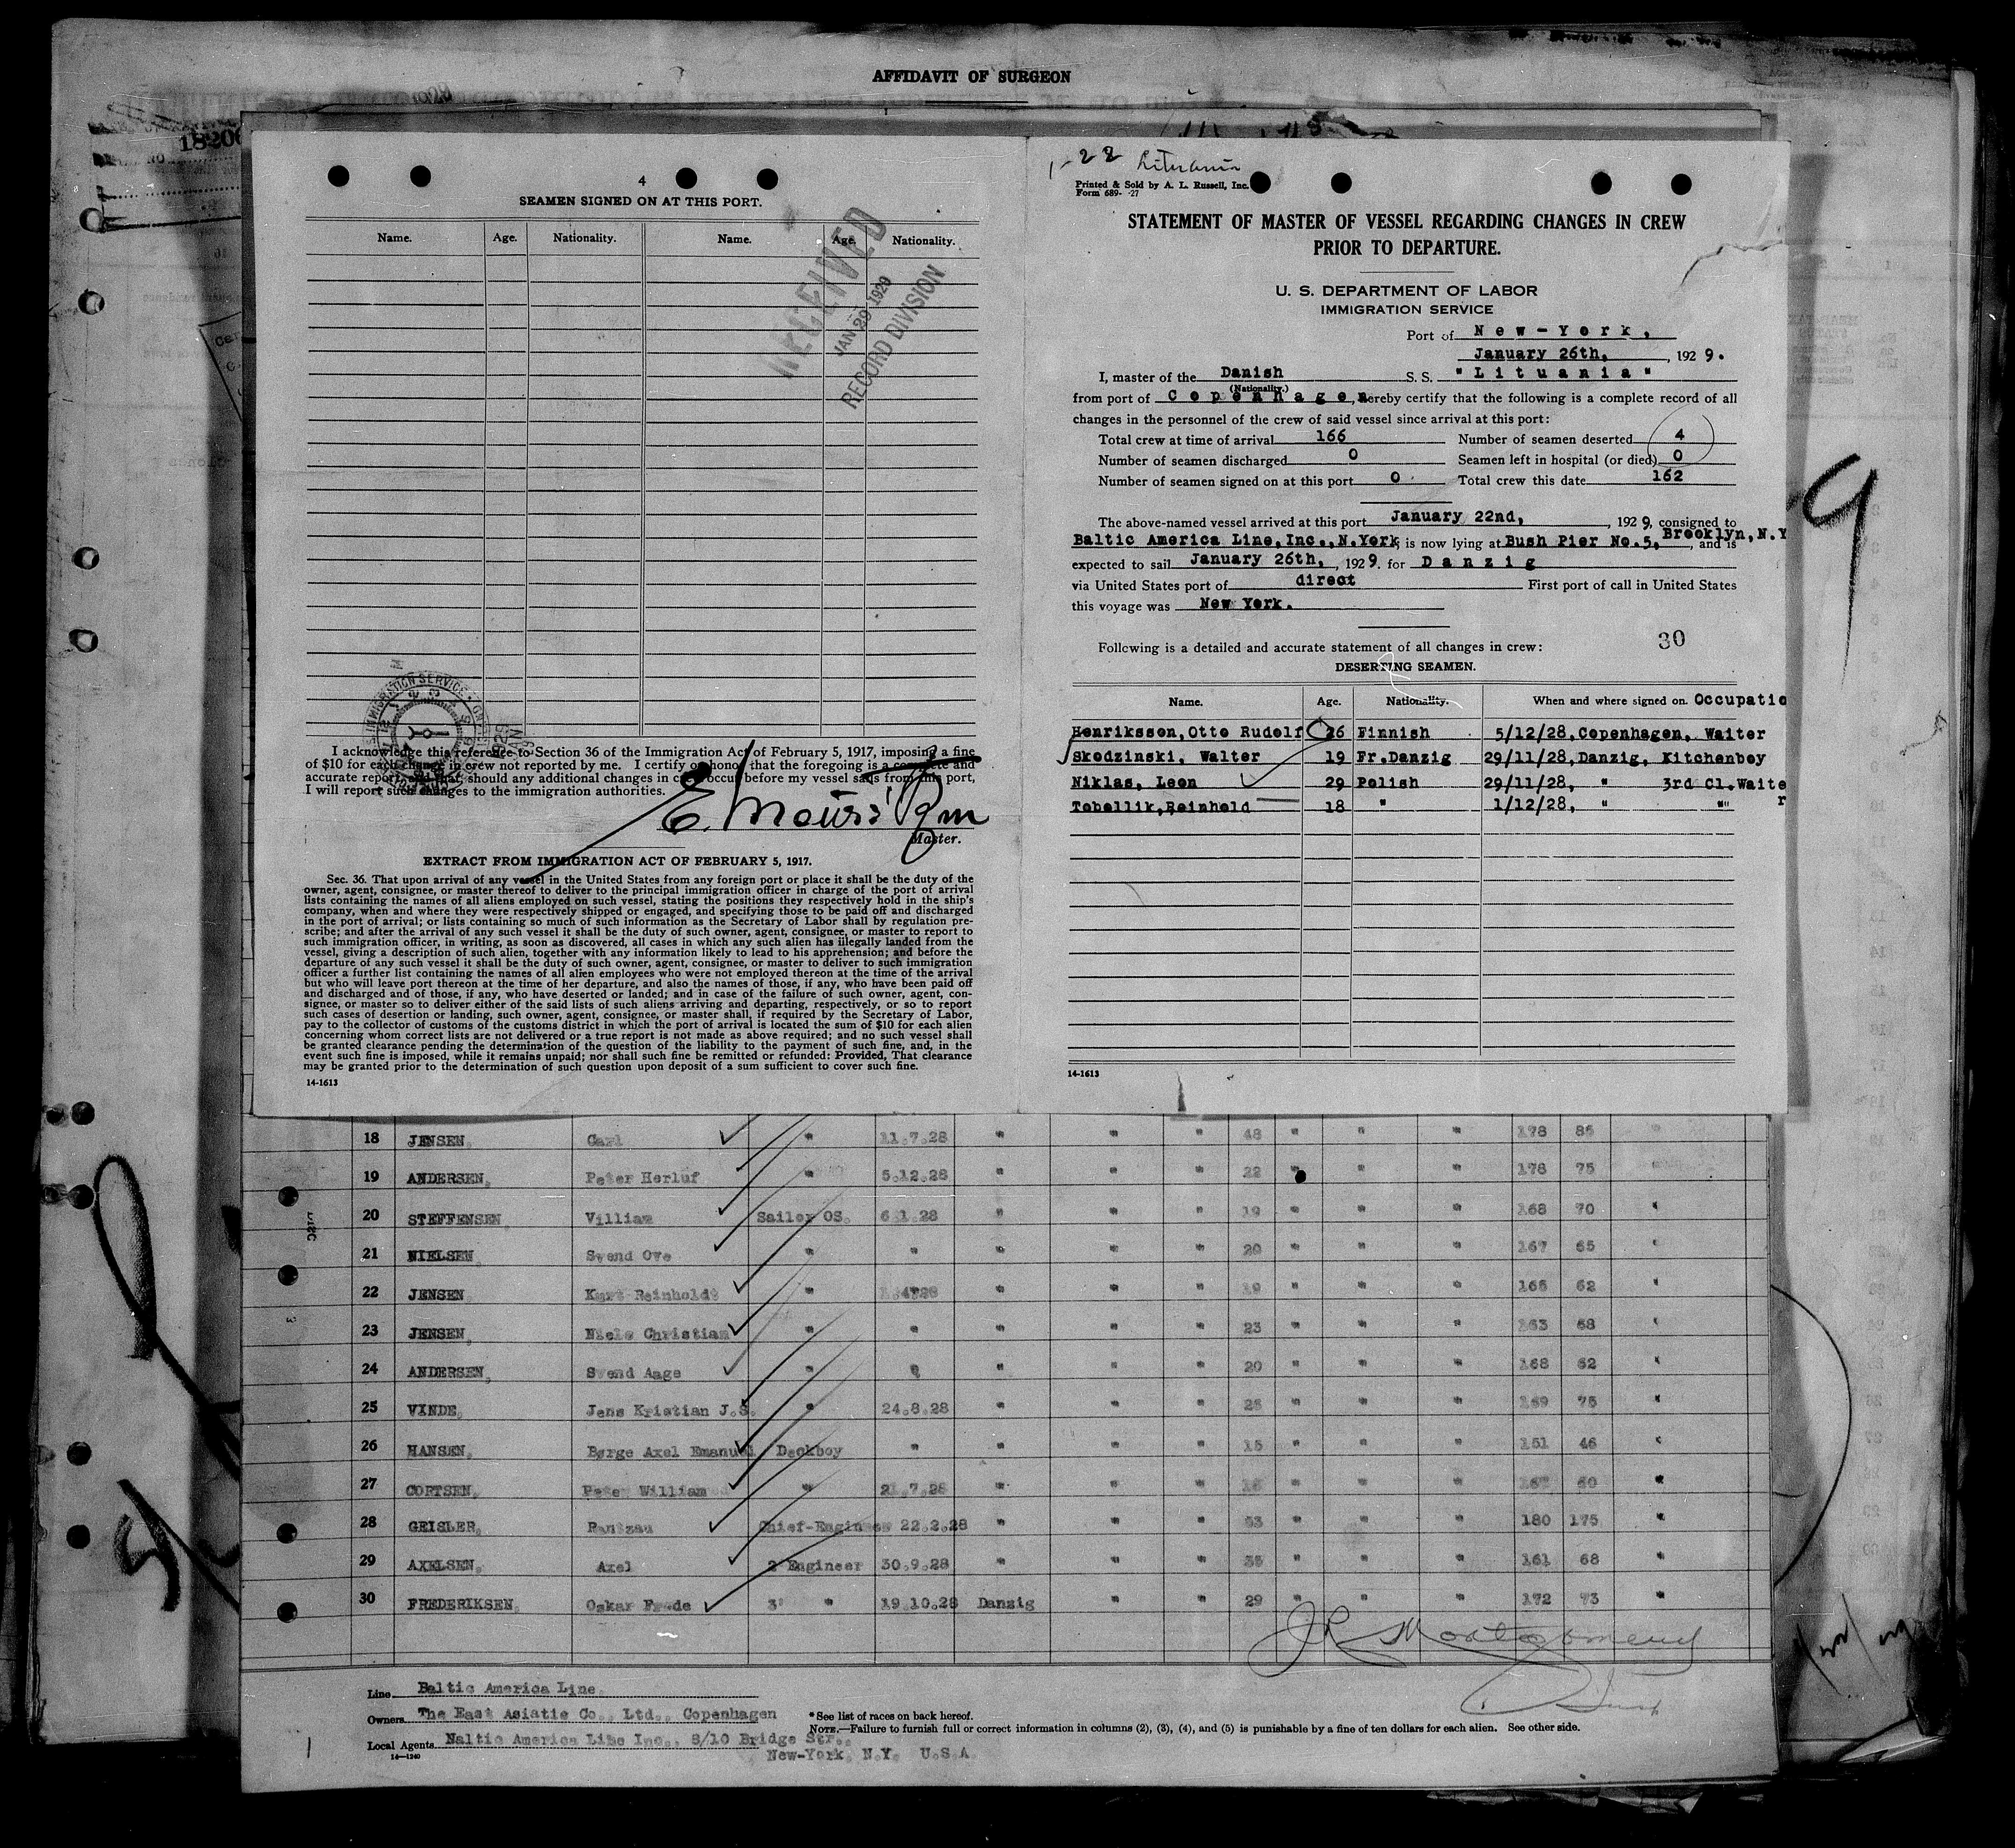 AFFIDAVIT OF SURGEON
4
SEAMEN SIGNED ON AT THIS PORT.
Name. Age. Nationality. Name. Age. Nationality.
RECEIVED
JAN 29 1929
RECORD DIVISION
I acknowledge this reference to Section 36 of the Immigration Act of February 5, 1917, imposing a fine
of $10 for each change in crew not reported by me. I certify on honor that the foregoing is a complete and
accurate report, and that, should any additional changes in crew occur before my vessel sails from this port,
I will report such changes to the immigration authorities.
Master.
EXTRACT FROM IMMIGRATION ACT OF FEBRUARY 5, 1917.
Sec. 36. That upon arrival of any vessel in the United States from any foreign port or place it shall be the duty of the
owner, agent, consignee, or master thereof to deliver to the principal immigration officer in charge of the port of arrival
lists containing the names of all aliens employed on such vessel, stating the positions they respectively hold in the ship's
company, when and where they were respectively shipped or engaged, and specifying those to be paid off and discharged
in the port of arrival; or lists containing so much of such information as the Secretary of Labor shall by regulation pre-
scribe; and after the arrival of any such vessel it shall be the duty of such owner, agent, consignee, or master to report to
such immigration officer, in writing, as soon as discovered, all cases in which any such alien has illegally landed from the
vessel, giving a description of such alien, together with any information likely to lead to his apprehension; and before the
departure of any such vessel it shall be the duty of such owner, agent, consignee, or master to deliver to such immigration
officer a further list containing the names of all alien employees who were not employed thereon at the time of the arrival
but who will leave port thereon at the time of her departure, and also the names of those, if any, who have been paid off
and discharged and of those, if any, who have deserted or landed; and in case of the failure of such owner, agent, con-
signee, or master so to deliver either of the said lists of such aliens arriving and departing, respectively, or so to report
such cases of desertion or landing, such owner, agent, consignee, or master shall, if required by the Secretary of Labor,
pay to the collector of customs of the customs district in which the port of arrival is located the sum of $10 for each alien
concerning whom correct lists are not delivered or a true report is not made as above required; and no such vessel shall
be granted clearance pending the determination of the question of the liability to the payment of such fine, and, in the
event such fine is imposed, while it remains unpaid; nor shall such fine be remitted or refunded: Provided, That clearance
may be granted prior to the determination of such question upon deposit of a sum sufficient to cover such fine.
14-1613
1-22 Lituania
Printed & Sold by A. L. Russell, Inc.
Form 689- -27
STATEMENT OF MASTER OF VESSEL REGARDING CHANGES IN CREW
PRIOR TO DEPARTURE.
U. S. DEPARTMENT OF LABOR
IMMIGRATION SERVICE
Port of New-York,
January 26th, , 1929.
I, master of the Danish S. S. "Lituania"
(Nationality.)
from port of Copenhagen, hereby certify that the following is a complete record of all
changes in the personnel of the crew of said vessel since arrival at this port:
Total crew at time of arrival 166 Number of seamen deserted 4
Number of seamen discharged 0 Seamen left in hospital (or died) 0
Number of seamen signed on at this port 0 Total crew this date 162
The above-named vessel arrived at this port January 22nd, , 1929, consigned to
Baltic America Line, Inc., N.York; is now lying at Bush Pier No.5, Brooklyn, N.Y , and is
expected to sail January 26th, , 1929. for Danzig
via United States port of direct First port of call in United States
this voyage was New York.
Following is a detailed and accurate statement of all changes in crew: 30
DESERTING SEAMEN.
Name. Age. Nationality. When and where signed on. Occupatio
Henriksson, Otto Rudolf 26 Finnish 5/12/28, Copenhagen, Waiter
Skodzinski, Walter 19 Fr.Danzig 29/11/28, Danzig, Kitchenboy
Niklas, Leon 29 Polish 29/11/28, " 3rd Cl.Waite
Tobollik, Reinhold 18 " 1/12/28, " "" r
14-1613
9
18 JENSEN, Carl " 11.7.28 " " " 48 " " " 178 85 "
19 ANDERSEN, Peter Herluf " 5.12.28 " " " 22 " " " 178 75
20 STEFFENSEN, Villiam Sailor OS. 6.1.28 " " " 19 " " " 168 70 "
21 NIELSEN Svend Ove " " " " " 20 " " " 167 65 "
22 JENSEN Kurt Reinholdt " " " " 19 " " " 165 62 "
23 JENSEN, Niels Christian " " " " " 23 " " " 163 68 "
24 ANDERSEN, Svend Aage " " " " " 20 " " " 168 62 "
25 VINDE, Jens Kristian J.S. " 24.8.28 " " " 25 " " " 169 75 "
26 HANSEN, Børge Axel Emanuel Deckboy " " " " 15 " " " 151 46 "
27 CORTSEN, Peter William " 21.7.28 " " " " " " "
28 GEISLER, Rantzau Chief-Engineer 22.2.28 " " " 53 " " " 180 175 "
29 AXELSEN, Axel 2 Engineer 30.9.28 " " " 35 " " " 161 68 "
30 FREDERIKSEN, Oskar Frede 3' " 19.10.28 Danzig " " 29 " " " 172 73 "
J R Montgomery
Line Baltic America Line.
Owners The East Asiatic Co., Ltd., Copenhagen
Local Agents Naltic America Libe Inc., 8/10 Bridge Str.,
New-York, N.Y. U.S.A.
14—1240
* See list of races on back hereof.
NOTE.—Failure to furnish full or correct information in columns (2), (3), (4), and (5) is punishable by a fine of ten dollars for each alien. See other side.